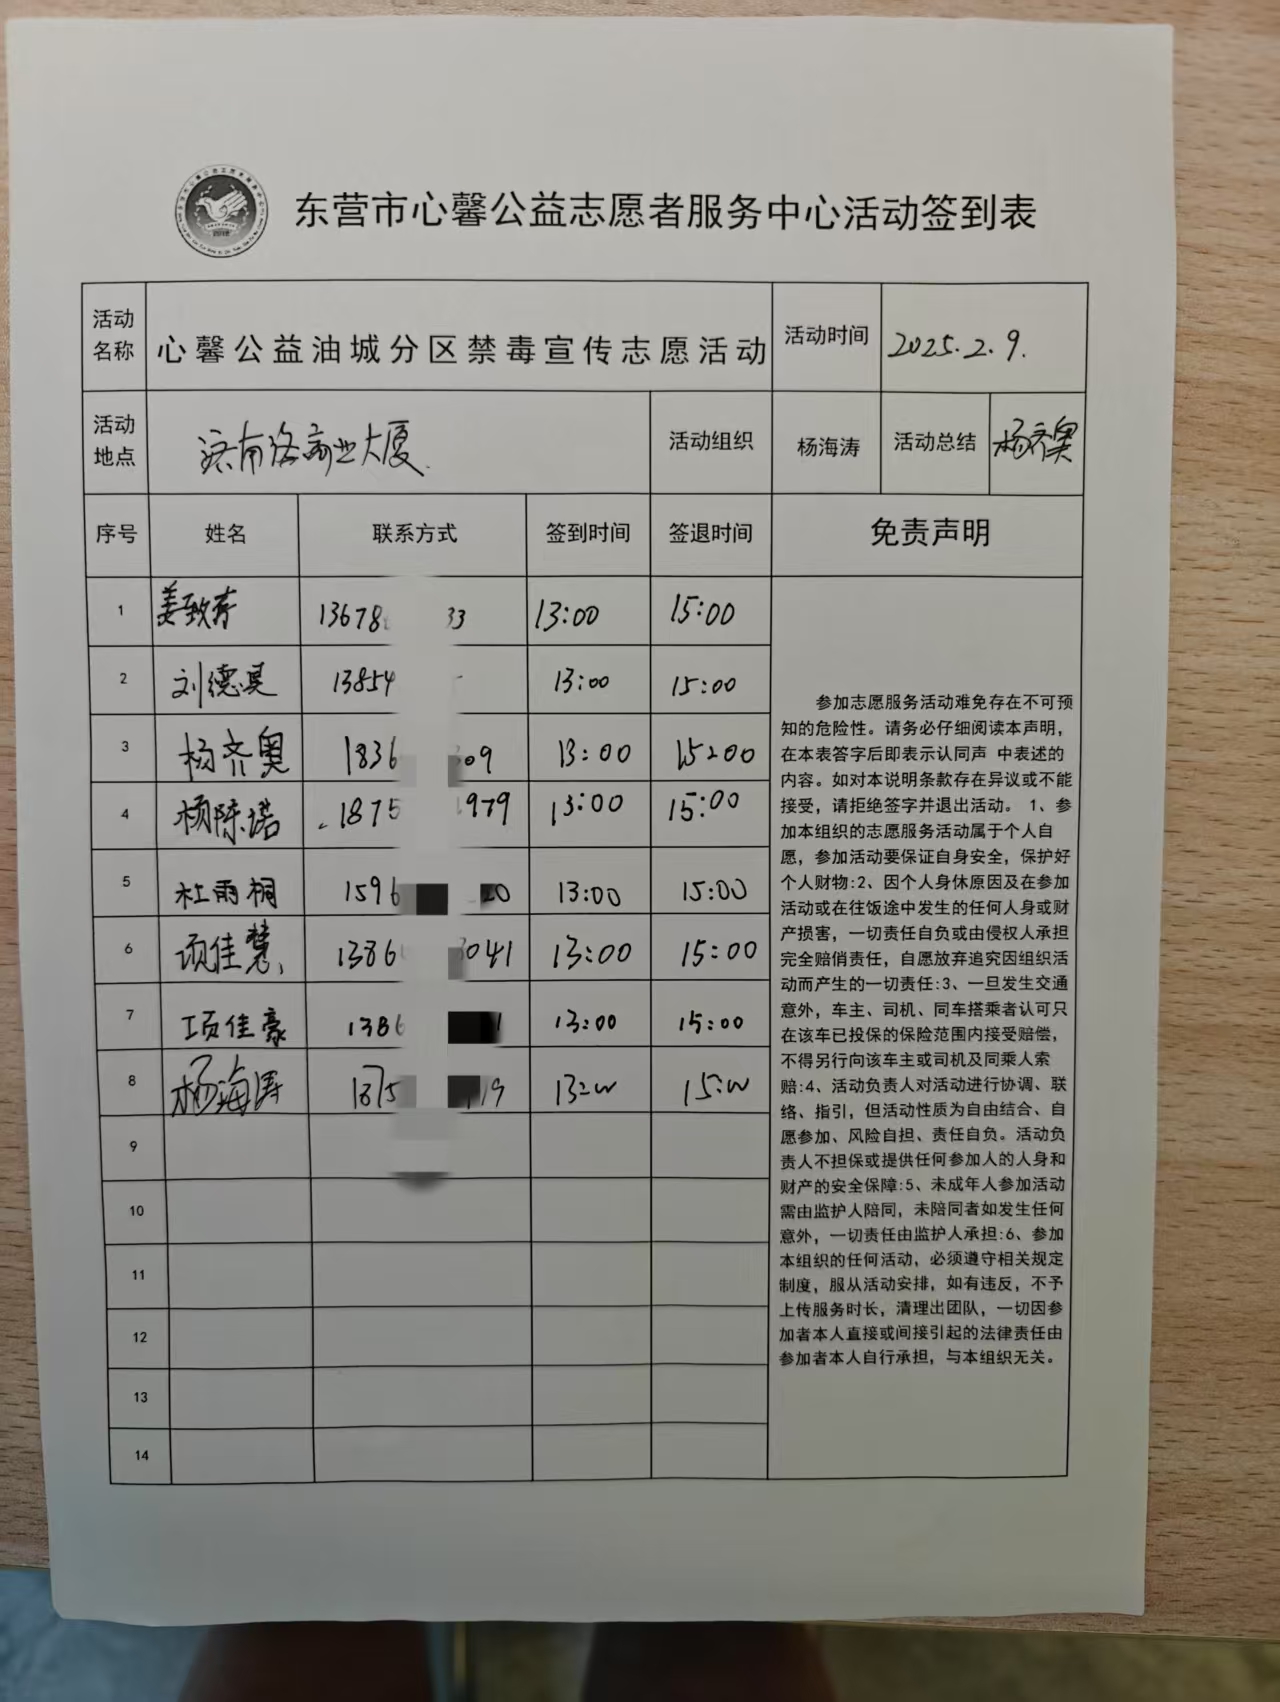 东营市心馨公益志愿者服务中心活动签到表
2018
活动名称 心馨公益油城分区禁毒宣传志愿活动 活动时间 2025.2.9.
活动地点 济南路商业大厦. 活动组织 杨海涛 活动总结 杨齐奥
序号 姓名 联系方式 签到时间 签退时间 免责声明
1 姜致存 13678 33 13:00 15:00
2 刘德昊 13854 13:00 15:00
3 杨齐奥 1836 309 13:00 15:00
4 杨陈诺 1875 979 13:00 15:00
5 杜雨桐 1596 20 13:00 15:00
6 项佳慧 1386 041 13:00 15:00
7 项佳豪 1386 1 13:00 15:00
8 杨海涛 1875 19 13:00 15:00
9
10
11
12
13
14
参加志愿服务活动难免存在不可预
知的危险性。请务必仔细阅读本声明，
在本表答字后即表示认同声 中表述的
内容。如对本说明条款存在异议或不能
接受，请拒绝签字并退出活动。 1、参
加本组织的志愿服务活动属于个人自
愿，参加活动要保证自身安全，保护好
个人财物:2、因个人身休原因及在参加
活动或在往饭途中发生的任何人身或财
产损害，一切责任自负或由侵权人承担
完全赔俏责任，自愿放弃追究因组织活
动而产生的一切责任:3、一旦发生交通
意外，车主、司机、同车搭乘者认可只
在该车已投保的保险范围内接受赔偿，
不得另行向该车主或司机及同乘人索
赔:4、活动负责人对活动进行协调、联
络、指引，但活动性质为自由结合、自
愿参加、风险自担、责任自负。活动负
责人不担保或提供任何参加人的人身和
财产的安全保障:5、未成年人参加活动
需由监护人陪同，未陪同者如发生任何
意外，一切责任由监护人承担:6、参加
本组织的任何活动，必须遵守相关规定
制度，服从活动安排，如有违反，不予
上传服务时长，清理出团队，一切因参
加者本人直接或间接引起的法律责任由
参加者本人自行承担，与本组织无关。